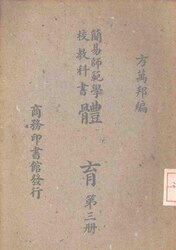 方萬邦編
簡易師範學
校教科書
體育
第三册
商務印書館發行